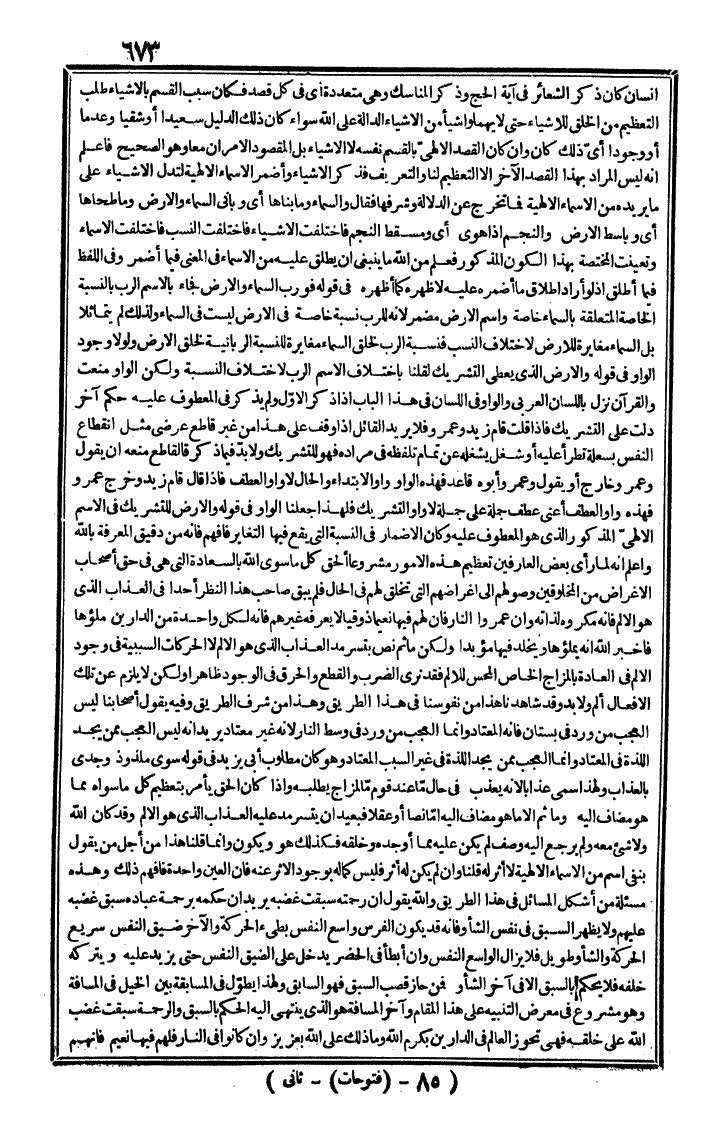 ٦٧٣
انسان كان ذكر الشعائر فى آية الحج وذكر المناسك وهى متعددة أى فى كل قصد فكان سبب القسم بالاشياء طلب
التعظيم من الخلق للاشياء حتى لا يهملوا شيأ من الاشياء الدالة على الله سواء كان ذلك الدليل سعيدا أو شقيا وعدما
أو وجودا أى ذلك كان وان كان القصد الالهى بالقسم نفسه لا الاشياء بل المقصود الامران معا وهو الصحيح فاعلم
انه ليس المراد بهذا القصد الآخر الا التعظيم لنا والتعريف فذكر الاشياء وأضمر الاسماء الالهية لتدل الاشياء على
ما يريده من الاسماء الالهية فما تخرج عن الدلالة وشرفها فقال والسماء وما بناها أى وبانى السماء والارض وما طحاها
أى وباسط الارض والنجم اذا هوى أى ومسقط النجم فاختلفت الاشياء فاختلفت النسب فاختلفت الاسماء
وتعينت المختصة بهذا الكون المذكور فعلم من الله ما ينبغى ان يطلق عليه من الاسماء فى المعنى فيما أضمر وفى اللفظ
فيما أطلق اذ لو أراد اطلاق ما أضمره عليه لاظهره كما أظهره فى قوله فورب السماء والارض فجاء بالاسم الرب بالنسبة
الخاصة المتعلقة بالسماء خاصة واسم الارض مضمر لانه للرب نسبة خاصة فى الارض ليست فى السماء ولذلك لم يتماثلا
بل السماء مغايرة للارض لاختلاف النسب فنسبة الرب لخلق السماء مغايرة للنسبة الربانية لخلق الارض ولولا وجود
الواو فى قوله والارض الذى يعطى التشريك لقلنا باختلاف الاسم الرب لاختلاف النسبة ولكن الواو منعت
والقرآن نزل باللسان العربى والواو فى اللسان فى هذا الباب اذا ذكر الاول ولم يذكر فى المعطوف عليه حكم آخر
دلت على التشريك فاذا قلت قام زيد وعمرو فلا يريد القائل اذا وقف على هذا من غير قاطع عرضى مثل انقطاع
النفس بسعلة تطرأ عليه أو شغل يشغله عن تمام تلفظه فى مراده فهو للتشريك ولا بد فيما ذكر فالقاطع منعه ان يقول
وعمرو خارج أو يقول وعمرو أبوه قاعد فهذه الواو واو الابتداء والحال لا واو العطف فاذا قال قام زيد وخرج عمرو
فهذه واو العطف أعنى عطف جلة على جلة لا واو التشريك فلهذا جعلنا الواو فى قوله والارض للتشريك فى الاسم
الالهى المذكور الذى هو المعطوف عليه وكان الاضمار فى النسبة التى يقع فيها التغاير فافهم فانه من دقيق المعرفة بالله
واعلم انه لما رأى بعض العارفين تعظيم هذه الامور مشروعا ألحق كل ما سوى الله بالسعادة التى هى فى حق أصحاب
الاغراض من المخلوقين وصولهم الى اغراضهم التى تخلق لهم فى الحال فلم يبق صاحب هذا النظر أحدا فى العذاب الذى
هو الالم فانه مكروه لذاته وان عمروا النار فان لهم فيها نعيما ذوقيا لا يعرفه غيرهم فانه لكل واحدة من الدارين ملؤها
فاخبر الله انه يملؤها ويخلد فيها مؤبدا ولكن ما ثم نص بتسرمد العذاب الذى هو الالم لا الحركات السببية فى وجود
الالم فى العادة بالمزاج الخاص المحس للالم فقد نرى الضرب والقطع والحرق فى الوجود ظاهرا ولكن لا يلزم عن تلك
الافعال ألم ولا بد وقد شاهدنا هذا من نفوسنا فى هذا الطريق وهذا من شرف الطريق وفيه يقول أصحابنا ليس
العجب من ورد فى بستان فانه المعتاد وانما العجب من ورد فى وسط النار لانه غير معتاد يريد انه ليس العجب ممن يجد
اللذة فى المعتاد وانما العجب ممن يجد اللذة فى غير السبب المعتاد وهو كان مطلوب أبى يزيد فى قوله سوى ملذوذ وجدى
بالعذاب ولهذا سمى عذابا لانه يعذب فى حال ما عند قوم ما لمزاج يطلبه واذا كان الحق يأمر بتعظيم كل ما سواه مما
هو مضاف اليه وما ثم الا ما هو مضاف اليه اما نصا أو عقلا فبعيد ان يتسرمد عليه العذاب الذى هو الالم وقد كان الله
ولا شئ معه ولم يرجع اليه وصف لم يكن عليه مما أوجده وخلقه فكذلك هو ويكون وانما قلنا هذا من أجل من يقول
بنفى اسم من الاسماء الالهية لا أثر له قلنا وان لم يكن له أثر فليس كماله بوجود الاثر عنه فان العين واحدة فافهم ذلك وهذه
مسئلة من أشكل المسائل فى هذا الطريق والله يقول ان رحمته سبقت غضبه يريد ان حكمه برحمة عباده سبق غضبه
عليهم ولا يظهر السبق فى نفس الشأو فانه قد يكون الفرس واسع النفس بطىء الحركة والآخر ضيق النفس سريع
الحركة والشأو طويل فلا يزال الواسع النفس وان أبطأ فى الحضر يدخل على الضيق النفس حتى يزيد عليه ويتركه
خلفه فلا يحكم بالسبق الا فى آخر الشأو فمن حاز قصب السبق فهو السابق ولهذا يطول فى المسابقة بين الخيل فى المسافة
وهو مشروع فى معرض التنبيه على هذا المقام وآخر المسافة هو الذى ينتهى اليه الحكم بالسبق والرحمة سبقت غضب
الله على خلقه فهى تحوز العالم فى الدارين بكرم الله وما ذلك على الله بعزيز وان كانوا فى النار فلهم فيها نعيم فانهم
( ٨٥ - (فتوحات) - ثانى )